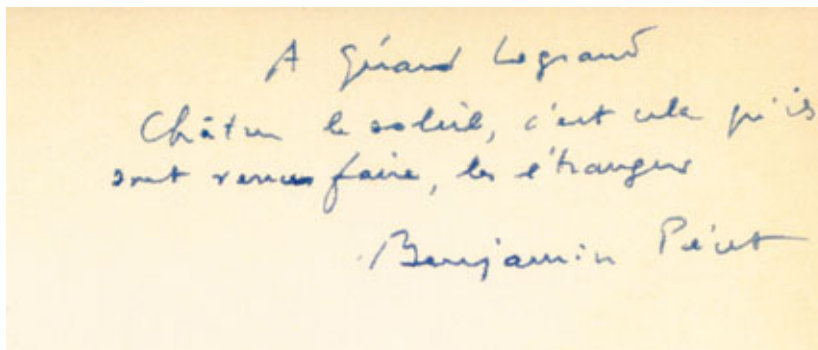 A Gérard Legrand
Châtrer le soleil, c'est cela qu'ils
sont venus faire, les étrangers
Benjamin Péret